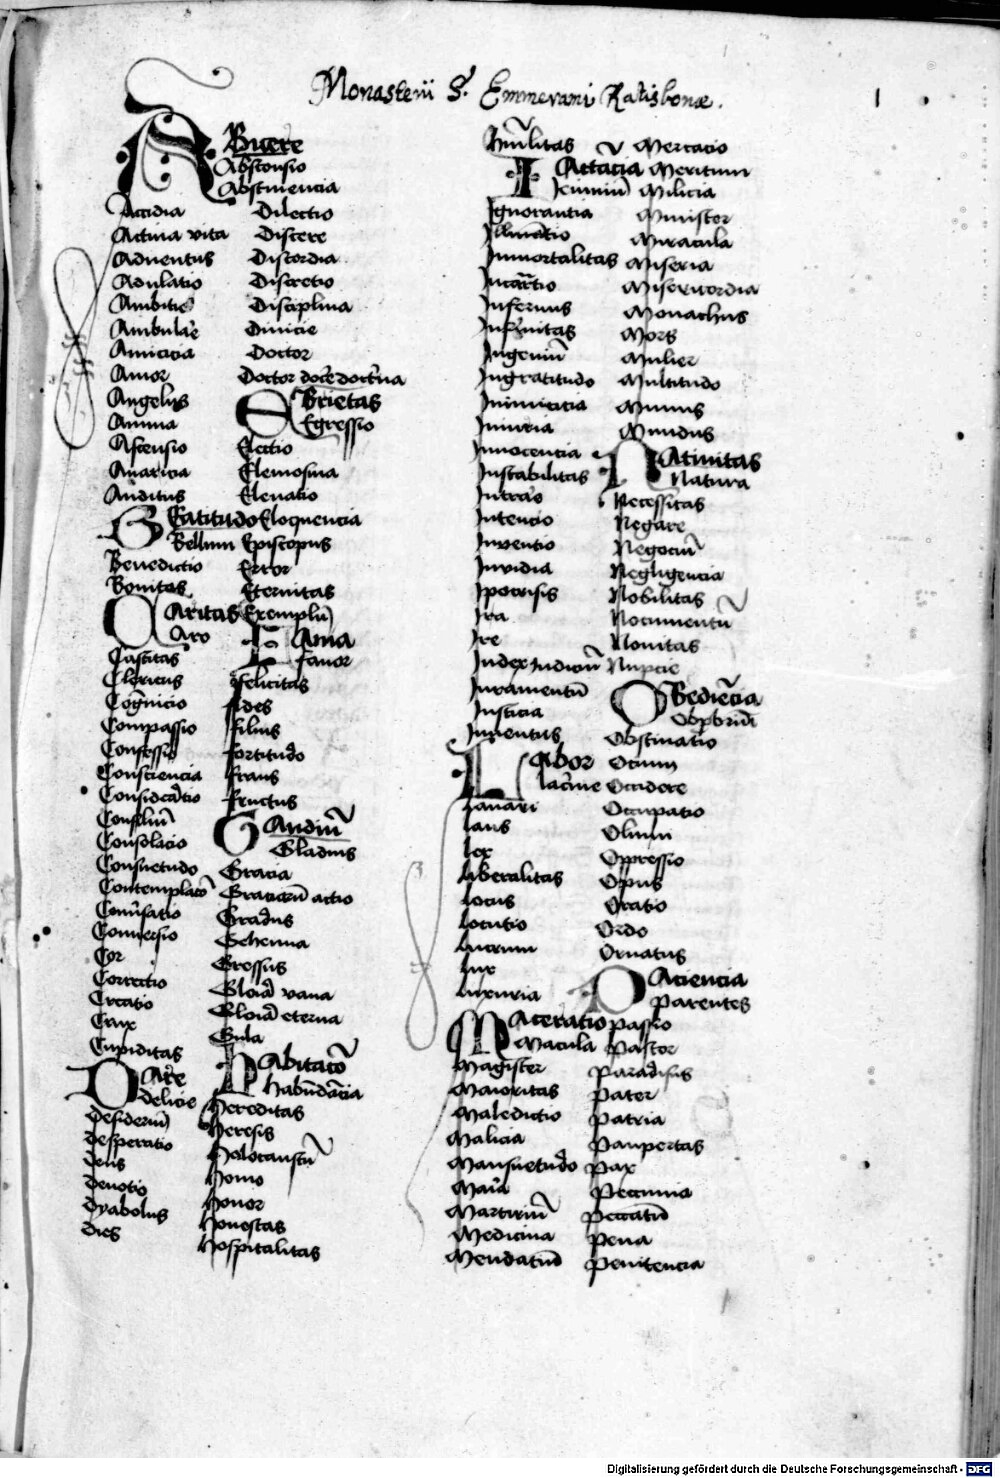 Monasterii S. Emmerami Ratisbonae.
1
Abuere
Absconsio
Abstinencia
Accidia
Actiua vita
Aduentus
Adulatio
Ambitio
Ambulare
Amicicia
Amor
Angelus
Anima
Ascensio
Auaricia
Auditus
Beatitudo
Bellum
Benedictio
Bonitas
Caritas
Caro
Castitas
Clericus
Cognicio
Compassio
Confessio
Consciencia
Consideratio
Consiliu
Consolacio
Consuetudo
Contemplatio
Conuersatio
Conuersio
Cor
Correctio
Creatio
Crux
Cupiditas
Dare
delicie
desideriu
desperatio
deus
deuotio
dyabolus
dies
Dilectio
Discere
Discordia
Discretio
Disciplina
Diuicie
Doctor
Doctor doce doctrina
Ebrietas
Egressio
Electio
Elemosina
Eleuatio
Eloquencia
Episcopus
Error
Eternitas
Exemplu
Fama
fauor
felicitas
fides
filius
fortitudo
fraus
fructus
Gaudiu
Gladius
Gracia
Graciaru actio
Gradus
Gehenna
Gressus
Gloia vana
Gloia eterna
Gula
Habitatio
habundacia
hereditas
heresis
holocaustu
homo
honor
honestas
hospitalitas
Humilitas v
Iactacia
Ieiuniu
Ignorantia
Illuminatio
Inmortalitas
Incarnatio
Infernus
Infirmitas
Ingeniu
Ingratitudo
Inimicicia
Iniuria
Innocencia
Instabilitas
Intratio
Intencio
Inuentio
Inuidia
Ipocrisis
Ira
Ire
Iudex Iudiciu
Iuramentu
Iusticia
Iuuentus
Labor
lacrime
lauari
laus
lex
liberalitas
locus
locutio
lucrum
lux
luxuria
Maceratio
Macula
Magister
Maioritas
Maledictio
Malicia
Mansuetudo
Maria
Martiriu
Medicina
Mendatiu
Mercacio
Meritum
Milicia
Minister
Miracula
Miseria
Misericordia
Monachus
Mors
Mulier
Multitudo
Munus
Mundus
Natiuitas
Natura
Necessitas
Negare
Negociu
Negligencia
Nobilitas
Nocumentu
Nouitas
Nupcie
Obediecia
Obprobriu
Obstinatio
Ocium
Occidere
Occupatio
Olium
Oppressio
Opus
Oratio
Ordo
Ornatus
Paciencia
Parentes
Passio
Pastor
Paradisus
Pater
Patria
Paupertas
Pax
Peccunia
Peccatu
Pena
Penitencia
Digitalisierung gefördert durch die Deutsche Forschungsgemeinschaft - DFG